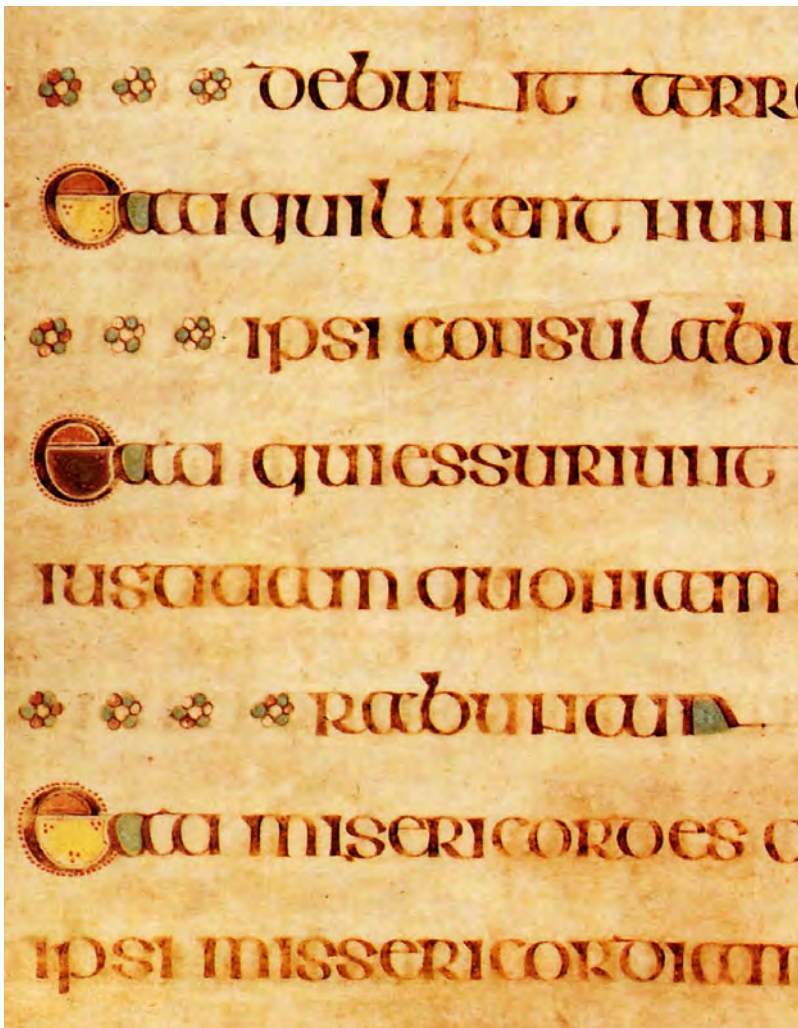 debunt terr
eati qui lugent nun
ipsi consulabu
eati qui essuriunt
iustitiam quoniam
rabuntur
eati misericordes
ipsi missericordiam